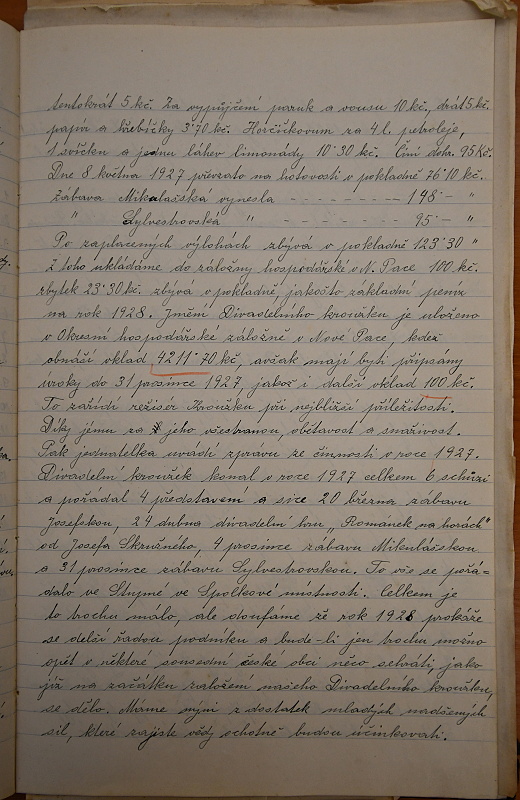 tentokrát 5 kč. Za vypůjčení paruk a vousu 10 kč., drát 5 kč.
papír a hřebíčky 3·70 kč. Horčičkovum za 4 l. petroleje,
1 svíčku a jednu láhev limonády 10·30 kč. Činí doh. 95 Kč.
Dne 8 května 1927 převzato na hotovosti v pokladně 76·10 kč.
Zábava Mikulašská vynesla - - - - - - - - - 148·— "
" Sylvestrovská " - - - - - - - - - 95·— "
Po zaplacených výlohách zbývá v pokladně 123·30 "
Z toho ukládáme do záložny hospodářské v N. Pace 100 kč.
zbytek 23·30 kč. zbývá v pokladně, jakožto základní peníz
na rok 1928. Jmění Divadelního kroužku je uloženo
v Okresní hospodářské záložně v Nové Pace, kdež
obnáší vklad 4211·70 kč, avšak mají býti připsány
úroky do 31 prosince 1927, jakož i další vklad 100 kč.
To zařídí režisér Kroužku při nejbližší příležitosti.
Díky jému za jeho všestranou obětavost a snaživost.
Pak jednatelka uvádí zpravu ze činnosti v roce 1927.
Divadelní kroužek konal v roce 1927 celkem 6 schůzí
a pořádal 4 představení a sice 20 března zábavu
Josefskou, 24 dubna divadelní hru „Románek na horách"
od Josefa Skružného, 4 prosince zábavu Mikulášskou
a 31 prosince zábavu Sylvestrovskou. To vše se pořá-
dalo ve Stupné ve Spolkové místnosti. Celkem je
to trochu málo, ale doufáme že rok 1928 prokáže
se delší řadou podniku a bude-li jen trochu možno
opět v některé sousední české obci něco sehrati, jako
již na začátku založení našeho Divadelního kroužku,
se dělo. Máme nyní z dostatek mladých nadšených
sil, které zajiste vždy ochotně budou účinkovati.